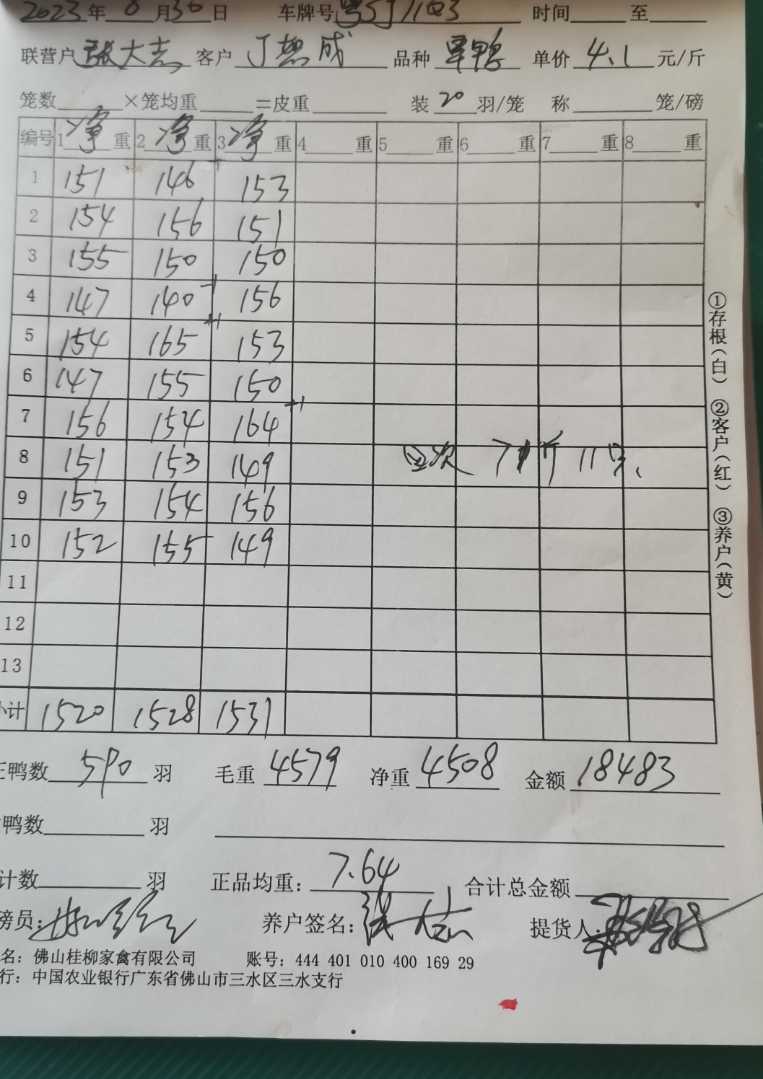 2023 年 8 月 30 日 车牌号 时间 至
联营户 张大志 客户 丁 成 品种 旱鸭 单价 4.1 元/斤
笼数 ×笼均重 =皮重 装 20 羽/笼 称 笼/磅
编号 1 净 重 2 净 重 3 净 重 4 重 5 重 6 重 7 重 8 重
1 151 146 153
2 154 156 151
3 155 150 150
4 147 140 156
5 154 165 153
6 147 155 150
7 156 154 164
8 151 153 149
9 153 154 156
10 152 155 149
11
12
13
小计 1520 1528 1531
①存根(白) ②客户(红) ③养户(黄)
鸭数 590 羽 毛重 4579 净重 4508 金额 18483
鸭数 羽
计数 羽 正品均重: 7.64 合计总金额
磅员: 养户签名: 张大志 提货人:
名: 佛山桂柳家禽有限公司 账号: 444 401 010 400 169 29
行: 中国农业银行广东省佛山市三水区三水支行